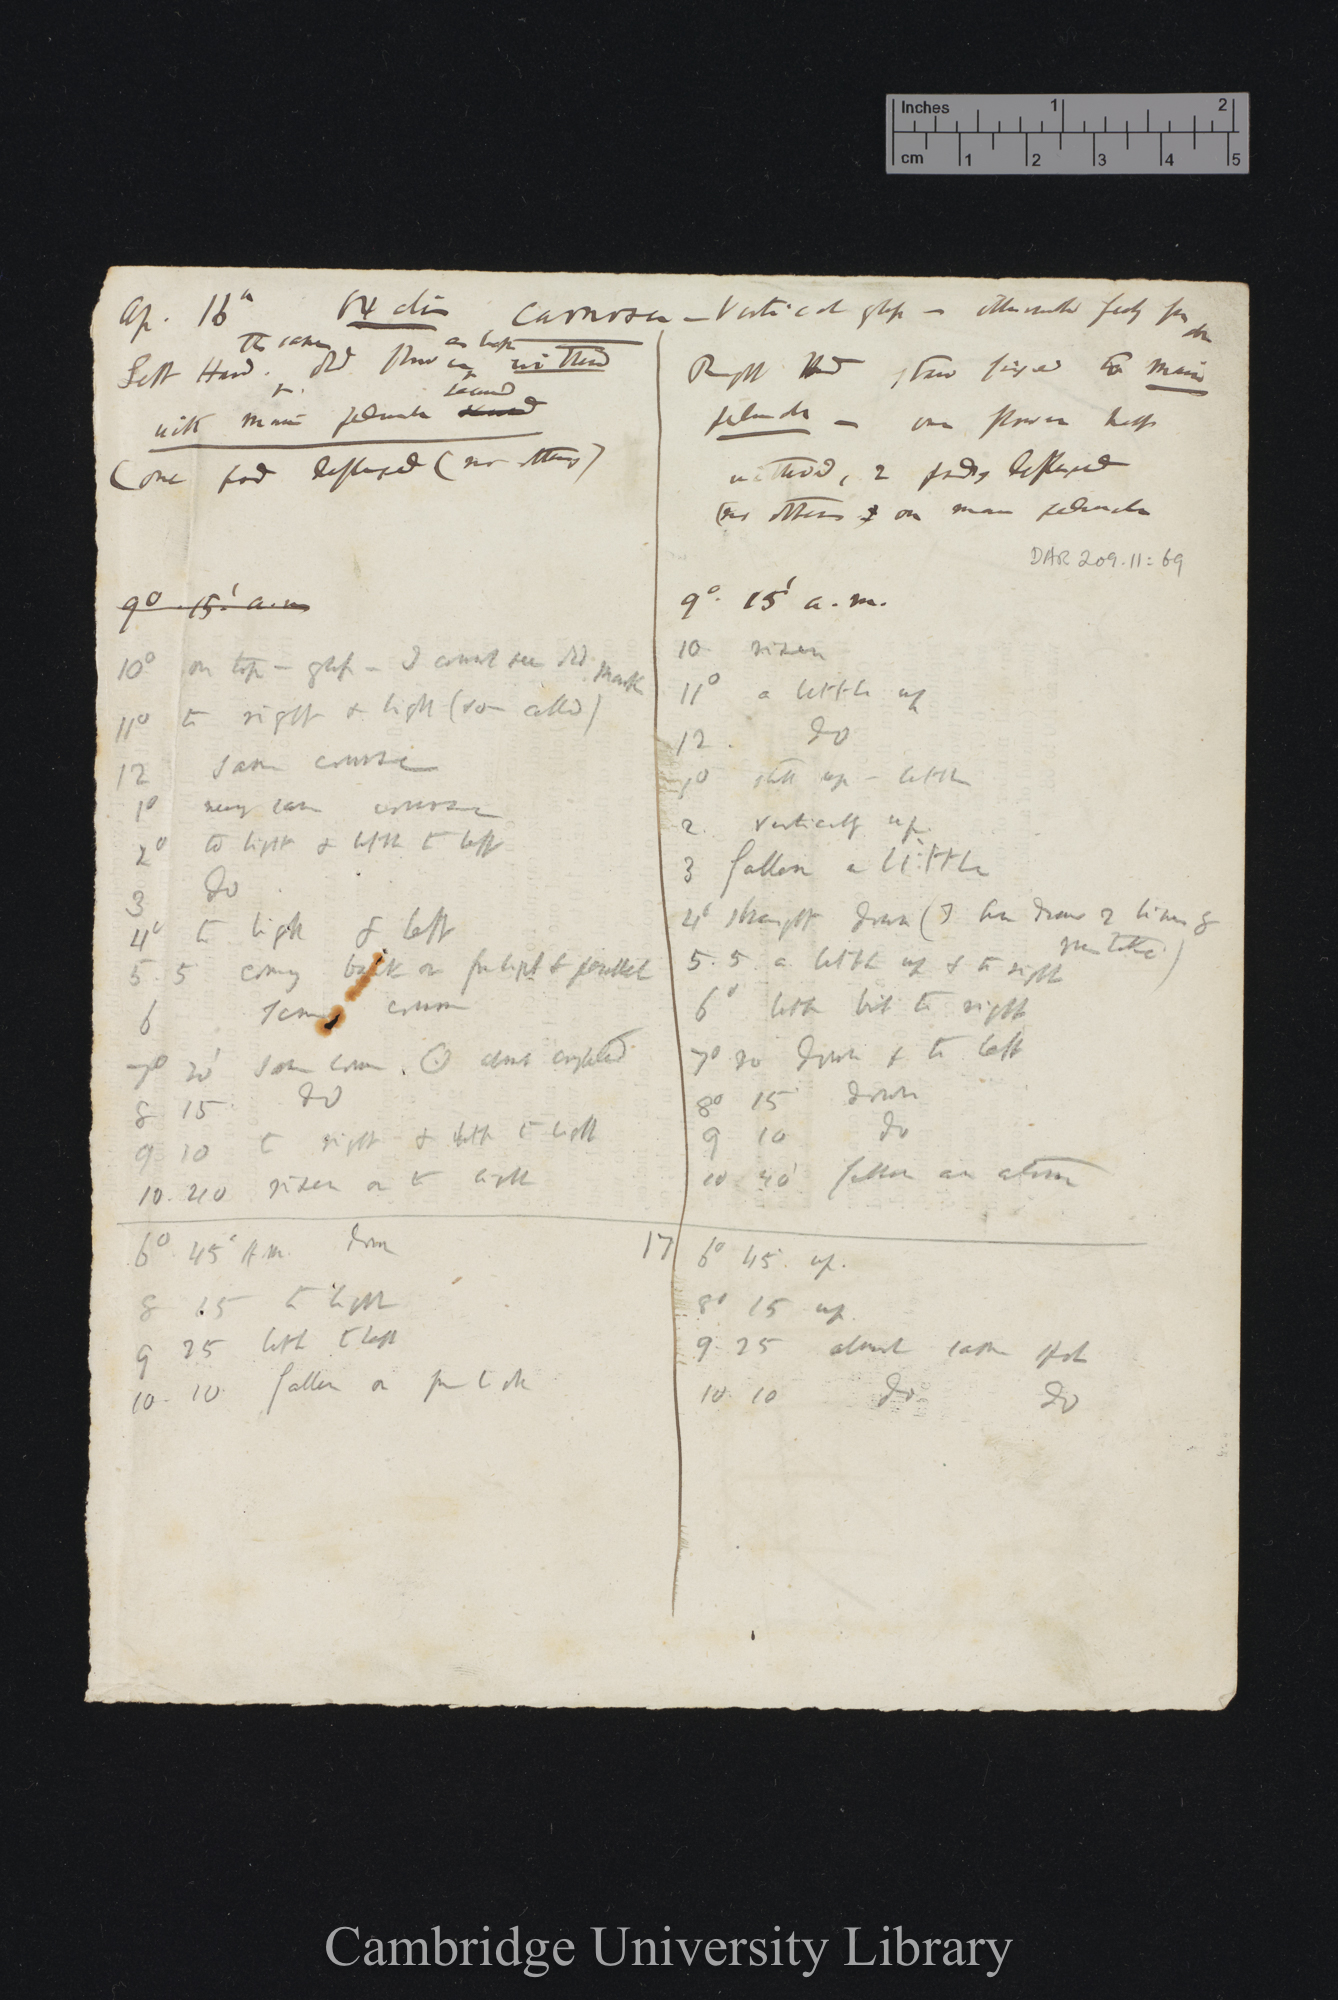 Inches 1 2
cm 1 2 3 4 5
Ap. 16th Oxalis carnosa — Vertical glass —
the same as last
Left Hand. Old withered
with main peduncle
(one pod deflexed (no others)
Right Hand fixed to main
peduncle — one flower half
withered, 2 pods deflexed
(no others on main peduncle
DAR 209.11: 69
9° 15' a.m
10° on top — glass — I cannot see old mark
11° to right & light
12 same course
1° same course
2° to light & little to left
3 do
4° to light & left
5. 5 coming back or from light & parallel
6 same course
7° 20' same course.
8 15 do
9 10 to right & little to light
10. 40 risen or to light
9° 15' a.m.
10 risen
11° a little up
12. do
1° still up — little
2. vertically up.
3 fallen a little
4° straight down (I have drawn 2 lines by mistake)
5. 5 a little up & to right
6° little bit to right
7° 20 down & to left
8° 15 down
9 10 do
10 40' fallen an atom
6° 45' A.m. down
8 15 to light
9 25 little to left
10. 10 fallen or from light
17
6° 45. up.
8° 15 up
9. 25 almost same spot
10 10 do do
Cambridge University Library